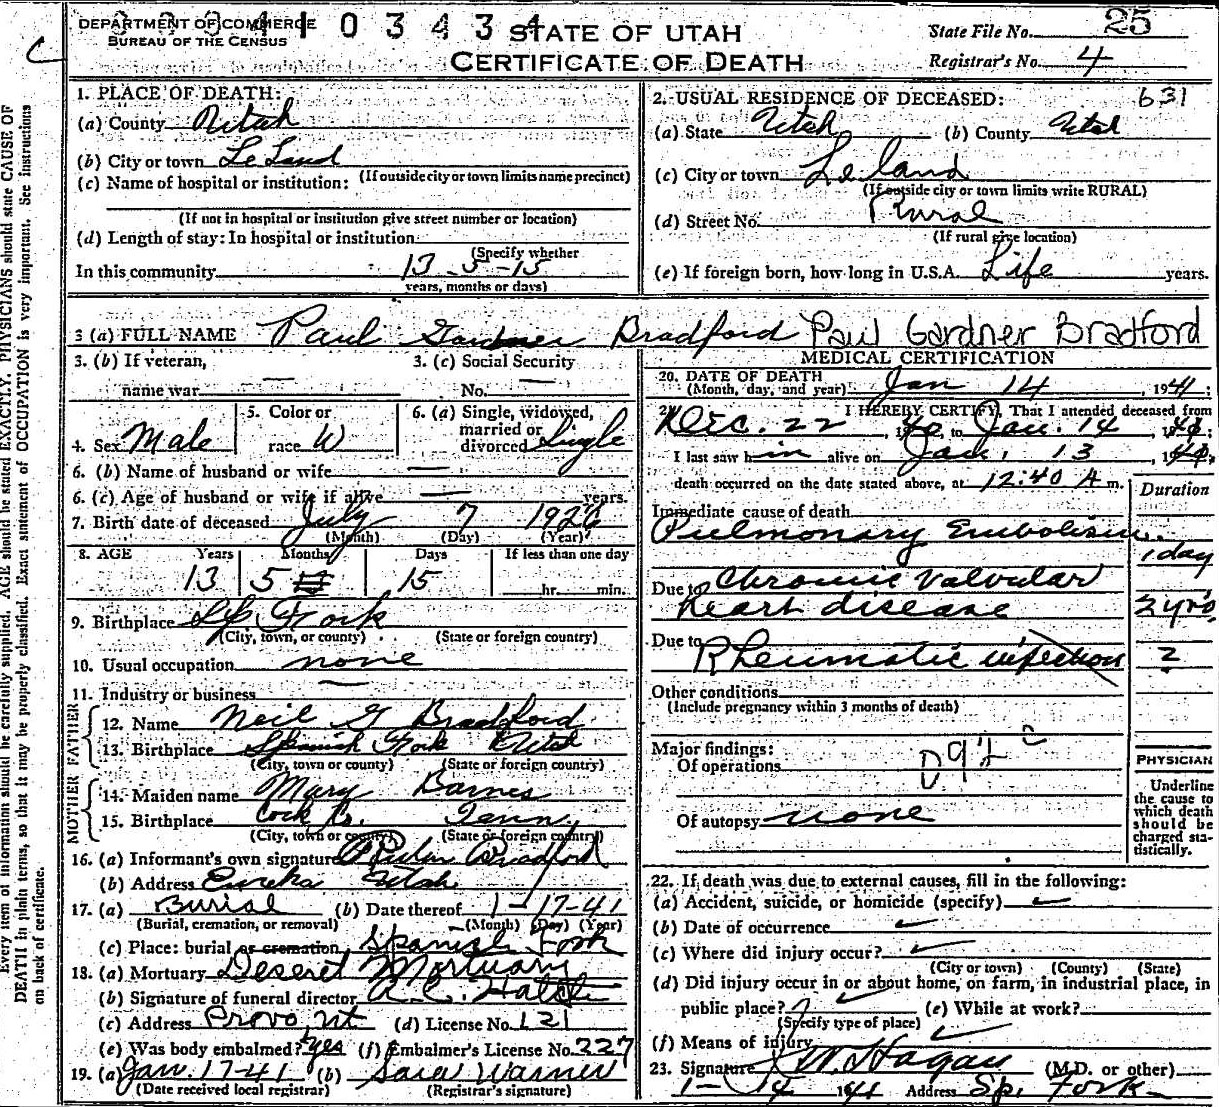 DEPARTMENT OF COMMERCE
BUREAU OF THE CENSUS
1 0 3 4 3 4
STATE OF UTAH
CERTIFICATE OF DEATH
State File No. 25
Registrar's No. 4
1. PLACE OF DEATH:
(a) County Utah
(b) City or town LeLand
(If outside city or town limits name precinct)
(c) Name of hospital or institution:
(If not in hospital or institution give street number or location)
(d) Length of stay: In hospital or institution
(Specify whether
In this community 13-5-15
years, months or days)
2. USUAL RESIDENCE OF DECEASED: 631
(a) State Utah (b) County Utah
(c) City or town Leland
(If outside city or town limits write RURAL)
(d) Street No. Rural
(If rural give location)
(e) If foreign born, how long in U.S.A. Life years.
3 (a) FULL NAME Paul Gardner Bradford Paul Gardner Bradford
3. (b) If veteran, name war —
3. (c) Social Security No. —
4. Sex Male
5. Color or race W
6. (a) Single, widowed, married or divorced Single
6. (b) Name of husband or wife —
6. (c) Age of husband or wife if alive — years.
7. Birth date of deceased July 7 1926
(Month) (Day) (Year)
8. AGE Years Months Days If less than one day
13 5 15 hr. min.
9. Birthplace Sp Fork
(City, town, or county) (State or foreign country)
10. Usual occupation none
11. Industry or business —
FATHER
12. Name Neil G Bradford
13. Birthplace Spanish Fork Utah
(City, town or county) (State or foreign country)
MOTHER
14. Maiden name Mary Barnes
15. Birthplace Cock Co. Tenn
(City, town or county) (State or foreign country)
16. (a) Informant's own signature Bradford
(b) Address Eureka Utah
17. (a) Burial (b) Date thereof 1-17-41
(Burial, cremation, or removal) (Month) (Day) (Year)
(c) Place: burial or cremation Spanish Fork
18. (a) Mortuary Deseret Mortuary
(b) Signature of funeral director A.C. Hatch
(c) Address Provo, Ut (d) License No. 121
(e) Was body embalmed? Yes (f) Embalmer's License No. 227
19. (a) Jan. 17-41 (b) Sara Warner
(Date received local registrar) (Registrar's signature)
MEDICAL CERTIFICATION
20. DATE OF DEATH
(Month, day, and year) Jan 14, 1941;
21. I HEREBY CERTIFY, That I attended deceased from
Dec. 22, 1940, to Jan. 14, 1941;
I last saw him alive on Jan. 13, 1941;
death occurred on the date stated above, at 12:40 A m.
Duration
Immediate cause of death
Pulmonary Embolism. 1 day
Due to Chronic Valvular
heart disease 2 yrs.
Due to Rheumatic infection 2
Other conditions
(Include pregnancy within 3 months of death)
Major findings:
Of operations
Of autopsy none
PHYSICIAN
Underline
the cause to
which death
should be
charged sta-
tistically.
22. If death was due to external causes, fill in the following:
(a) Accident, suicide, or homicide (specify)
(b) Date of occurrence
(c) Where did injury occur?
(City or town) (County) (State)
(d) Did injury occur in or about home, on farm, in industrial place, in
public place? (e) While at work?
(Specify type of place)
(f) Means of injury
23. Signature W. Hagan (M.D. or other)
1-14 1941 Address Sp. Fork
Every item of information should be carefully supplied. AGE should be stated EXACTLY. PHYSICIANS should state CAUSE OF
DEATH in plain terms, so that it may be properly classified. Exact statement of OCCUPATION is very important. See instructions
on back of certificate.